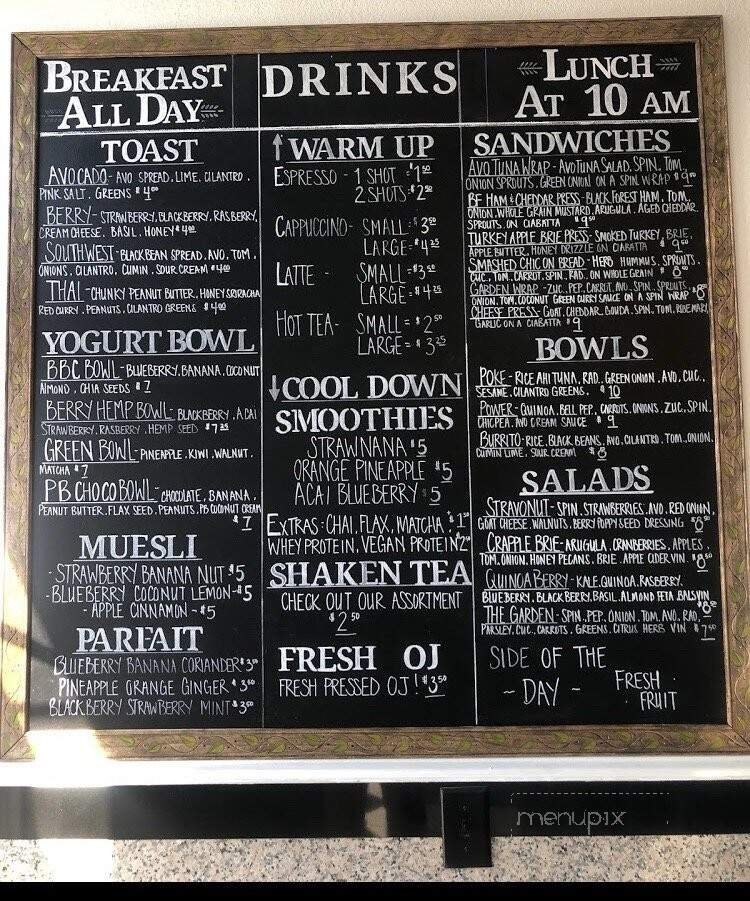 BREAKFAST
ALL DAY
TOAST
AVOCADO- AVO SPREAD. LIME. CILANTRO.
PINK SALT. GREENS $4⁰⁰
BERRY- STRAWBERRY, BLACKBERRY. RASBERRY,
CREAM CHEESE. BASIL. HONEY $4⁰⁰
SOUTHWEST- BLACK BEAN SPREAD. AVO. TOM.
ONIONS. CILANTRO. CUMIN. SOUR CREAM $4⁰⁰
THAI- CHUNKY PEANUT BUTTER. HONEY SRIRACHA
RED CURRY. PEANUTS. CILANTRO GREENS $4⁰⁰
YOGURT BOWL
BBC BOWL- BLUEBERRY. BANANA. COCONUT
ALMOND. CHIA SEEDS $7
BERRY HEMP BOWL- BLACKBERRY. ACAI
STRAWBERRY. RASBERRY. HEMP SEED $7²⁵
GREEN BOWL- PINEAPPLE. KIWI. WALNUT.
MATCHA $7
PB CHOCO BOWL- CHOCOLATE. BANANA.
PEANUT BUTTER. FLAX SEED. PEANUTS. PB COCONUT CREAM
$7
MUESLI
- STRAWBERRY BANANA NUT $5
- BLUEBERRY COCONUT LEMON- $5
- APPLE CINNAMON - $5
PARFAIT
BLUEBERRY BANANA CORIANDER $3⁵⁰
PINEAPPLE ORANGE GINGER $3⁵⁰
BLACKBERRY STRAWBERRY MINT $3⁵⁰
DRINKS
↑ WARM UP
ESPRESSO - 1 SHOT $1⁵⁰
2 SHOTS $2⁵⁰
CAPPUCCINO- SMALL: $3⁵⁰
LARGE: $4²⁵
LATTE - SMALL= $3⁵⁰
LARGE= $4²⁵
HOT TEA- SMALL= $2⁵⁰
LARGE= $3²⁵
↓ COOL DOWN
SMOOTHIES
STRAWNANA $5
ORANGE PINEAPPLE $5
ACAI BLUEBERRY $5
EXTRAS: CHAI, FLAX, MATCHA: $1⁵⁰
WHEY PROTEIN, VEGAN PROTEIN 2⁰⁰
SHAKEN TEA
CHECK OUT OUR ASSORTMENT
$2⁵⁰
FRESH OJ
FRESH PRESSED OJ! $3⁵⁰
LUNCH
AT 10 AM
SANDWICHES
AVO TUNA WRAP - AVO TUNA SALAD, SPIN, TOM,
ONION SPROUTS. GREEN ONION ON A SPIN WRAP $9⁰⁰
BF HAM & CHEDDAR PRESS- BLACK FOREST HAM. TOM.
ONION. WHOLE GRAIN MUSTARD. ARUGULA. AGED CHEDDAR.
SPROUTS ON CIABATTA $9⁵⁰
TURKEY APPLE BRIE PRESS- SMOKED TURKEY, BRIE,
APPLE BUTTER. HONEY DRIZZLE ON CIABATTA $9⁵⁰
SMASHED CHIC ON BREAD - HERB HUMMUS. SPROUTS.
CUC. TOM. CARROT. SPIN. RAD. ON WHOLE GRAIN $8⁵⁰
GARDEN WRAP -ZUC. PEP. CARROT. AVO. SPIN. SPROUTS.
ONION. TOM. COCONUT GREEN CURRY SAUCE ON A SPIN WRAP $8⁵⁰
CHEESE PRESS- GOAT. CHEDDAR. GOUDA. SPIN. TOM. ROSEMARY
GARLIC ON A CIABATTA $9
BOWLS
POKE- RICE AHI TUNA. RAD. GREEN ONION. AVO. CUC.
SESAME. CILANTRO GREENS. $10
POWER- QUINOA. BELL PEP. CARROTS. ONIONS. ZUC. SPIN.
CHICPEA. AVO CREAM SAUCE $9
BURRITO- RICE. BLACK BEANS. AVO. CILANTRO. TOM. ONION.
CUMIN LIME. SOUR CREAM $8
SALADS
STRAVONUT- SPIN. STRAWBERRIES. AVO. RED ONION.
GOAT CHEESE. WALNUTS. BERRY POPPY SEED DRESSING $8⁵⁰
CRAPPLE BRIE- ARUGULA. CRANBERRIES. APPLES.
TOM. ONION. HONEY PECANS. BRIE. APPLE CIDER VIN. $8⁵⁰
QUINOA BERRY- KALE. QUINOA. RASBERRY.
BLUEBERRY. BLACKBERRY. BASIL. ALMOND FETA. BALS VIN
$8⁵⁰
THE GARDEN- SPIN. PEP. ONION. TOM. AVO. RAD.
PARSLEY. CUC. CARROTS. GREENS. CITRUS HERB VIN $7⁵⁰
SIDE OF THE
- DAY -
FRESH
FRUIT
menupix